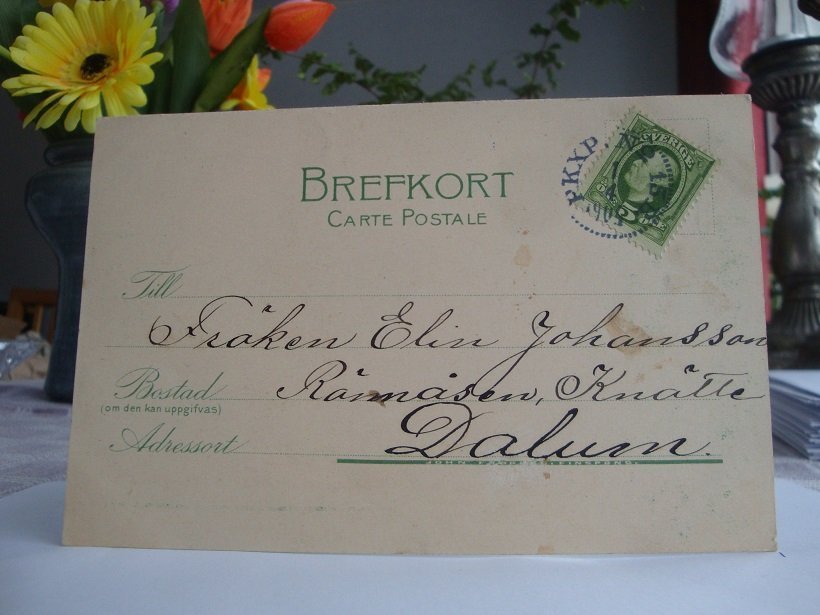 BREFKORT
CARTE POSTALE
PKXP.
SVERIGE
5
Till
Fröken Elin Johansson
Bostad
Knätte
(om den kan uppgifvas)
Adressort
Dalum.